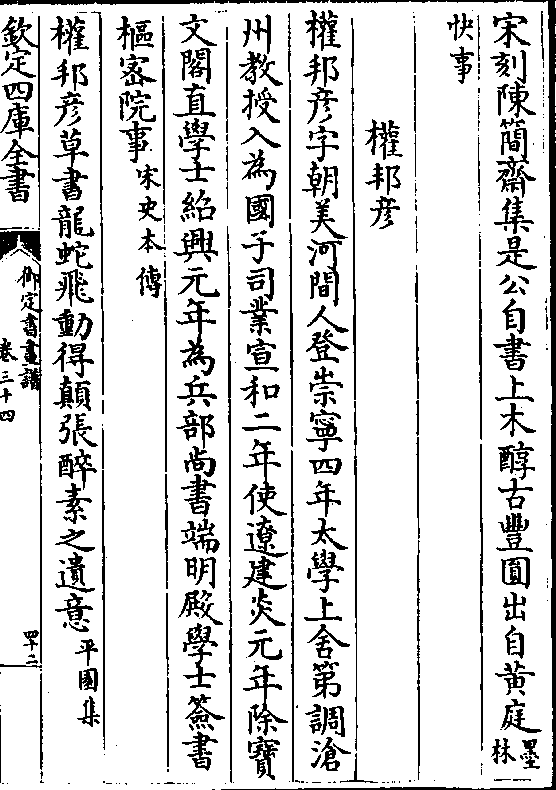 宋刻陳簡齋集是公自書上木醇古豐圓出自黄庭墨林
快事
權邦彦
權邦彦字朝美河間人登崇寧四年太學上舍第調滄
州教授入為國子司業宣和二年使遼建炎元年除寶
文閣直學士紹興元年為兵部尚書端明殿學士簽書
樞密院事宋史本傳
權邦彦草書龍蛇飛動得顛張醉素之遺意平園集
欽定四庫全書
御定書畫譜
卷三十四
四十二